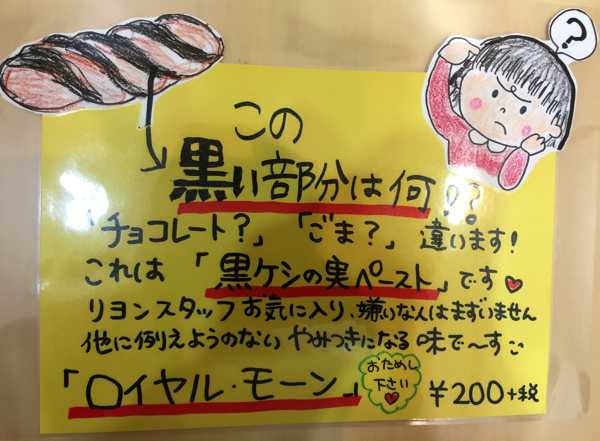 ?
この
黒い部分は何!?
「チョコレート?」「ごま?」違います!
これは「黒ケシの実ペースト」です♥
リヨンスタッフお気に入り、嫌いな人はまずいません
他に例えようのないやみつきになる味で〜す
「ロイヤル・モーン」
おためし
下さい
♥
¥200+税